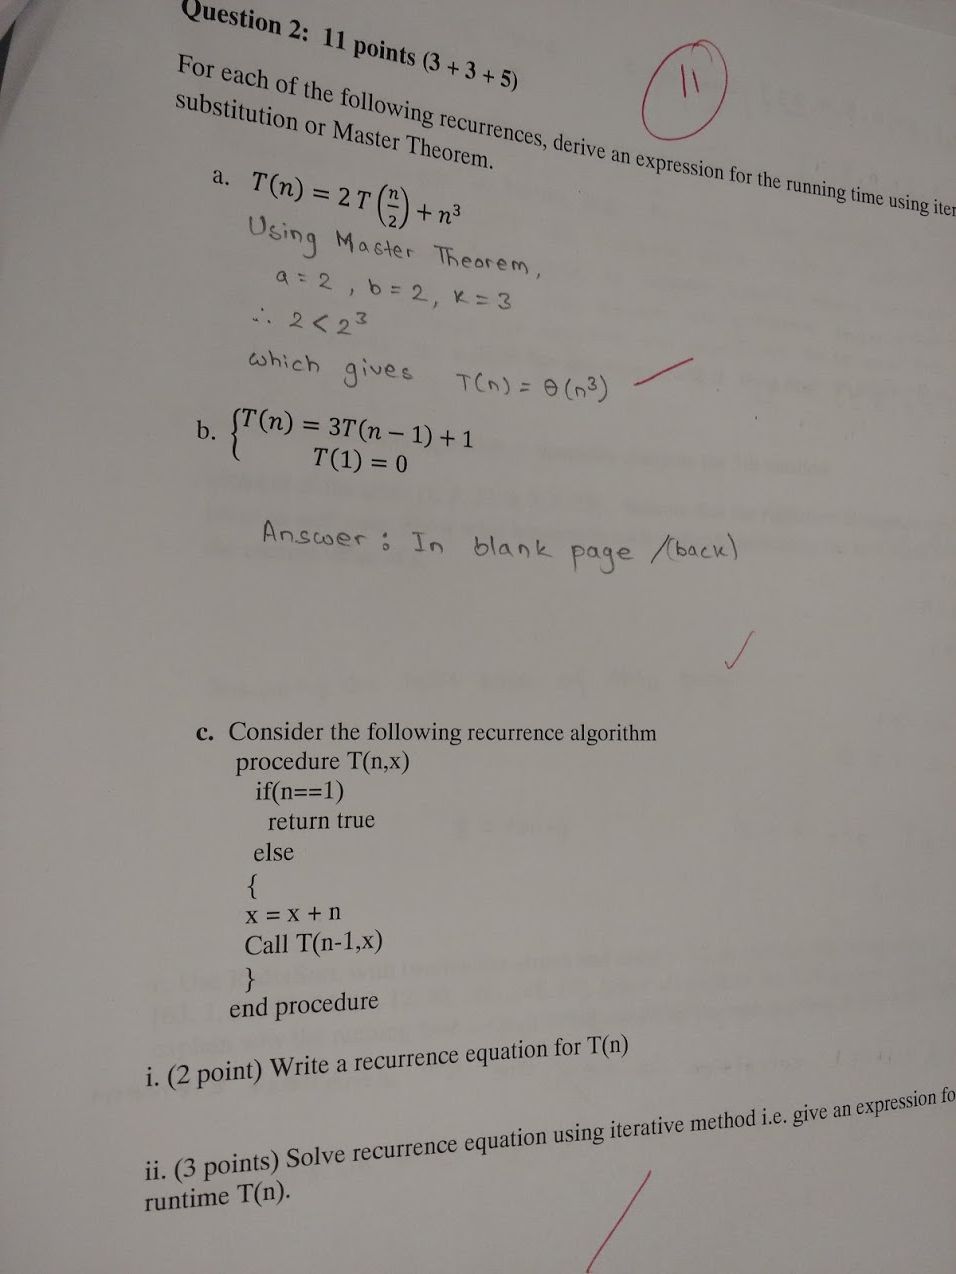 Question 2: 11 points (3 + 3 + 5)
11
For each of the following recurrences, derive an expression for the running time using
substitution or Master Theorem.
a. T(n) = 2 T (n/2) + n³
Using Master Theorem,
a = 2 , b = 2, k = 3
∴ 2 < 2³
which gives T(n) = θ(n³)
b. { T(n) = 3T(n − 1) + 1
T(1) = 0
Answer : In blank page /(back)
c. Consider the following recurrence algorithm
procedure T(n,x)
if(n==1)
return true
else
{
x = x + n
Call T(n-1,x)
}
end procedure
i. (2 point) Write a recurrence equation for T(n)
ii. (3 points) Solve recurrence equation using iterative method i.e. give an expression
runtime T(n).